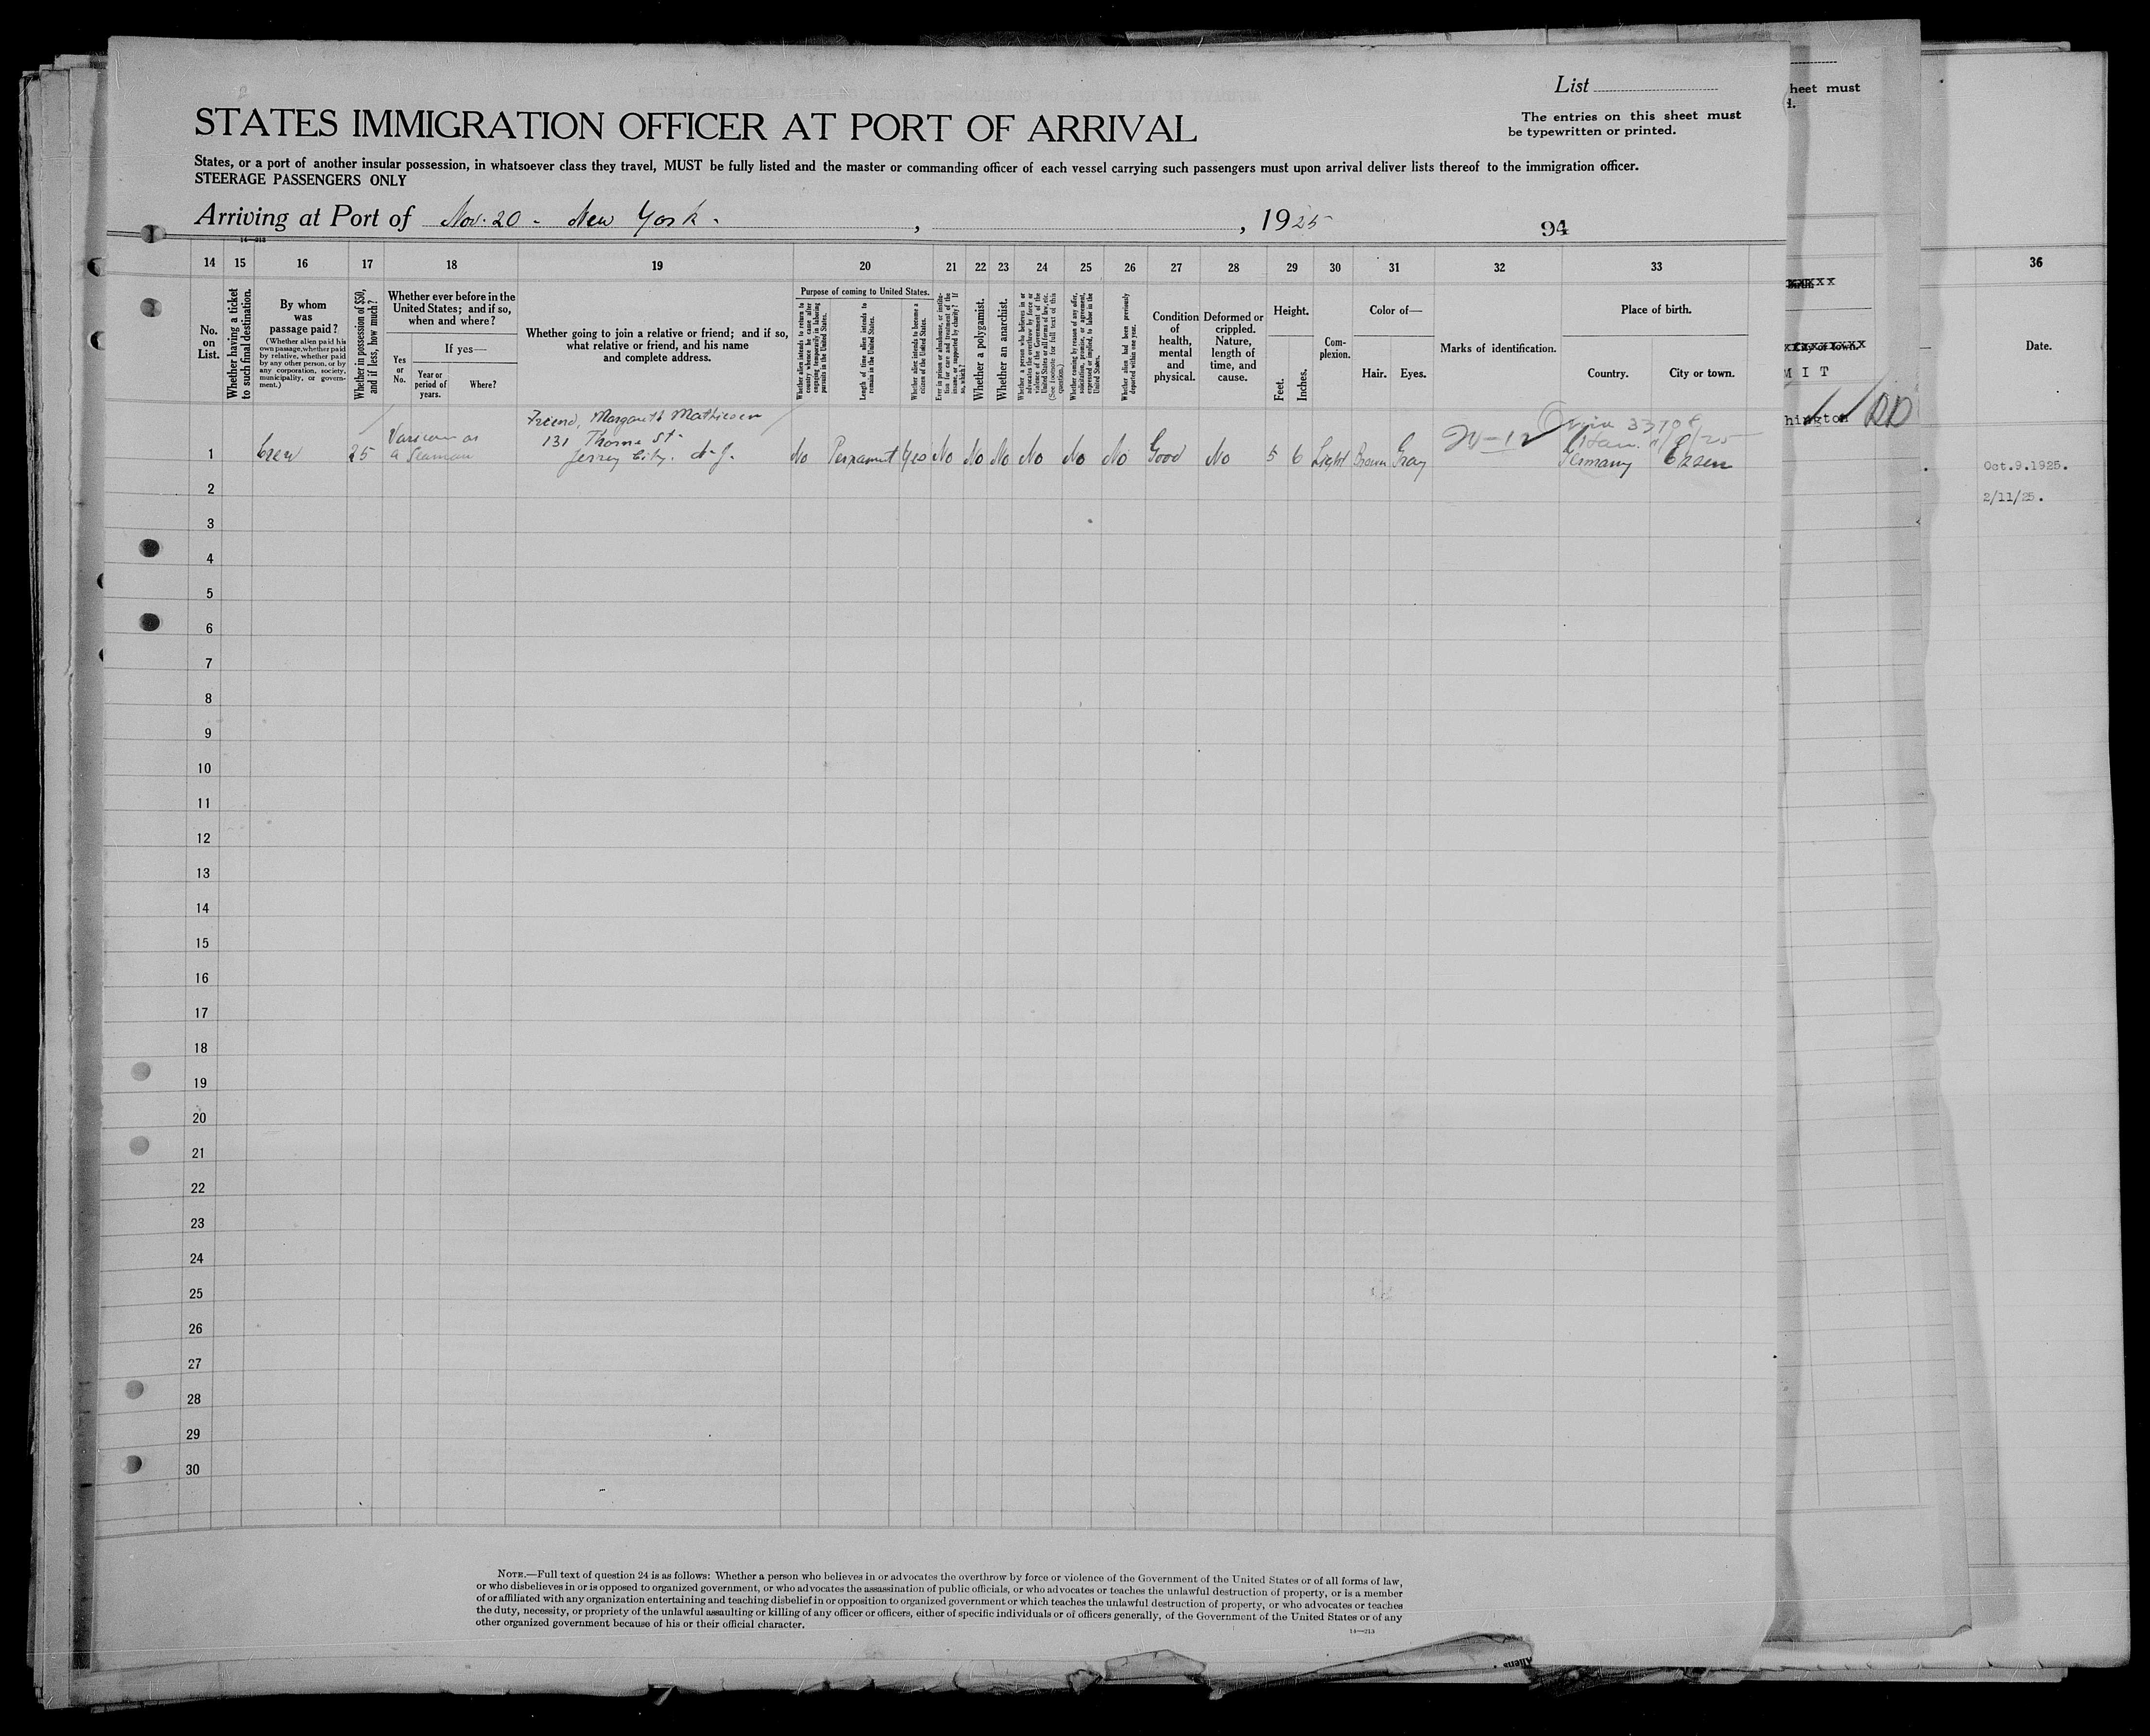 List
STATES IMMIGRATION OFFICER AT PORT OF ARRIVAL
The entries on this sheet must
be typewritten or printed.
States, or a port of another insular possession, in whatsoever class they travel, MUST be fully listed and the master or commanding officer of each vessel carrying such passengers must upon arrival deliver lists thereof to the immigration officer.
STEERAGE PASSENGERS ONLY
Arriving at Port of Nov. 20 - New York - , , 1925
94
14—213
14 15 16 17 18 19 20 21 22 23 24 25 26 27 28 29 30 31 32 33
No.
on
List.
Whether having a ticket
to such final destination.
By whom
was
passage paid?
(Whether alien paid his
own passage, whether paid
by relative, whether paid
by any other person, or by
any corporation, society,
municipality, or govern-
ment.)
Whether in possession of $50,
and if less, how much?
Whether ever before in the
United States; and if so,
when and where?
Yes
or
No.
If yes—
Year or
period of
years.
Where?
Whether going to join a relative or friend; and if so,
what relative or friend, and his name
and complete address.
Purpose of coming to United States.
Whether alien intends to return to
country whence he came after
engaging temporarily in laboring
pursuits in the United States.
Length of time alien intends to
remain in the United States.
Whether alien intends to become a
citizen of the United States.
Ever in prison or almshouse, or institu-
tion for care and treatment of the
insane, or supported by charity? If
so, which?
Whether a polygamist.
Whether an anarchist.
Whether a person who believes in or
advocates the overthrow by force or
violence of the Government of the
United States or all forms of law, etc.
(See footnote for full text of this
question.)
Whether coming by reason of any offer,
solicitation, promise, or agreement,
expressed or implied, to labor in the
United States.
Whether alien had been previously
deported within one year.
Condition
of
health,
mental
and
physical.
Deformed or
crippled.
Nature,
length of
time, and
cause.
Height.
Feet.
Inches.
Com-
plexion.
Color of—
Hair. Eyes.
Marks of identification.
Place of birth.
Country. City or town.
Friend, Margareth Mathiesen
131 Thorne St-
Jersey City. N.J.
1 Crew 25 Various as
a Seaman
No Permanent Yes No No No No No No Good No 5 6 Light Brown Gray Germany Essen
33708
2
3
4
5
6
7
8
9
10
11
12
13
14
15
16
17
18
19
20
21
22
23
24
25
26
27
28
29
30
NOTE.—Full text of question 24 is as follows: Whether a person who believes in or advocates the overthrow by force or violence of the Government of the United States or of all forms of law,
or who disbelieves in or is opposed to organized government, or who advocates the assassination of public officials, or who advocates or teaches the unlawful destruction of property, or is a member
of or affiliated with any organization entertaining and teaching disbelief in or opposition to organized government or which teaches the unlawful destruction of property, or who advocates or teaches
the duty, necessity, or propriety of the unlawful assaulting or killing of any officer or officers, either of specific individuals or of officers generally, of the Government of the United States or of any
other organized government because of his or their official character.
14—213
heet must
M I T
hington
36
Date.
Oct.9.1925.
2/11/25.